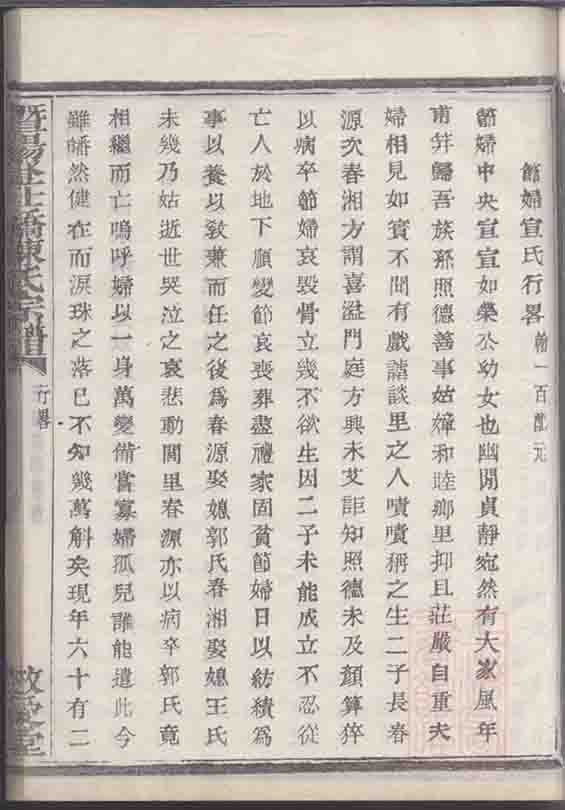 節婦宣氏行畧 翰一百配元
節婦中央宣宣如榮公幼女也幽閒貞靜宛然有大家風年
甫笄歸吾族孫照德善事姑嫜和睦鄉里抑且莊嚴自重夫
婦相見如賓不聞有戲謔談里之人嘖嘖稱之生二子長春
源次春湘方謂喜溢門庭方興未艾詎知照德未及顏算猝
以病卒節婦哀毀骨立幾不欲生因二子未能成立不忍從
亡人於地下願變節哀喪葬盡禮家固貧節婦日以紡績為
事以養以教兼而任之後為春源娶媳郭氏春湘娶媳王氏
未幾乃姑逝世哭泣之哀悲動閭里春源亦以病卒郭氏竟
相繼而亡嗚呼婦以一身萬變備嘗寡婦孤兒誰能遣此今
雖皤然健在而淚珠之落已不知幾萬斛矣現年六十有二
暨陽 橋陳氏宗譜
行畧
堂